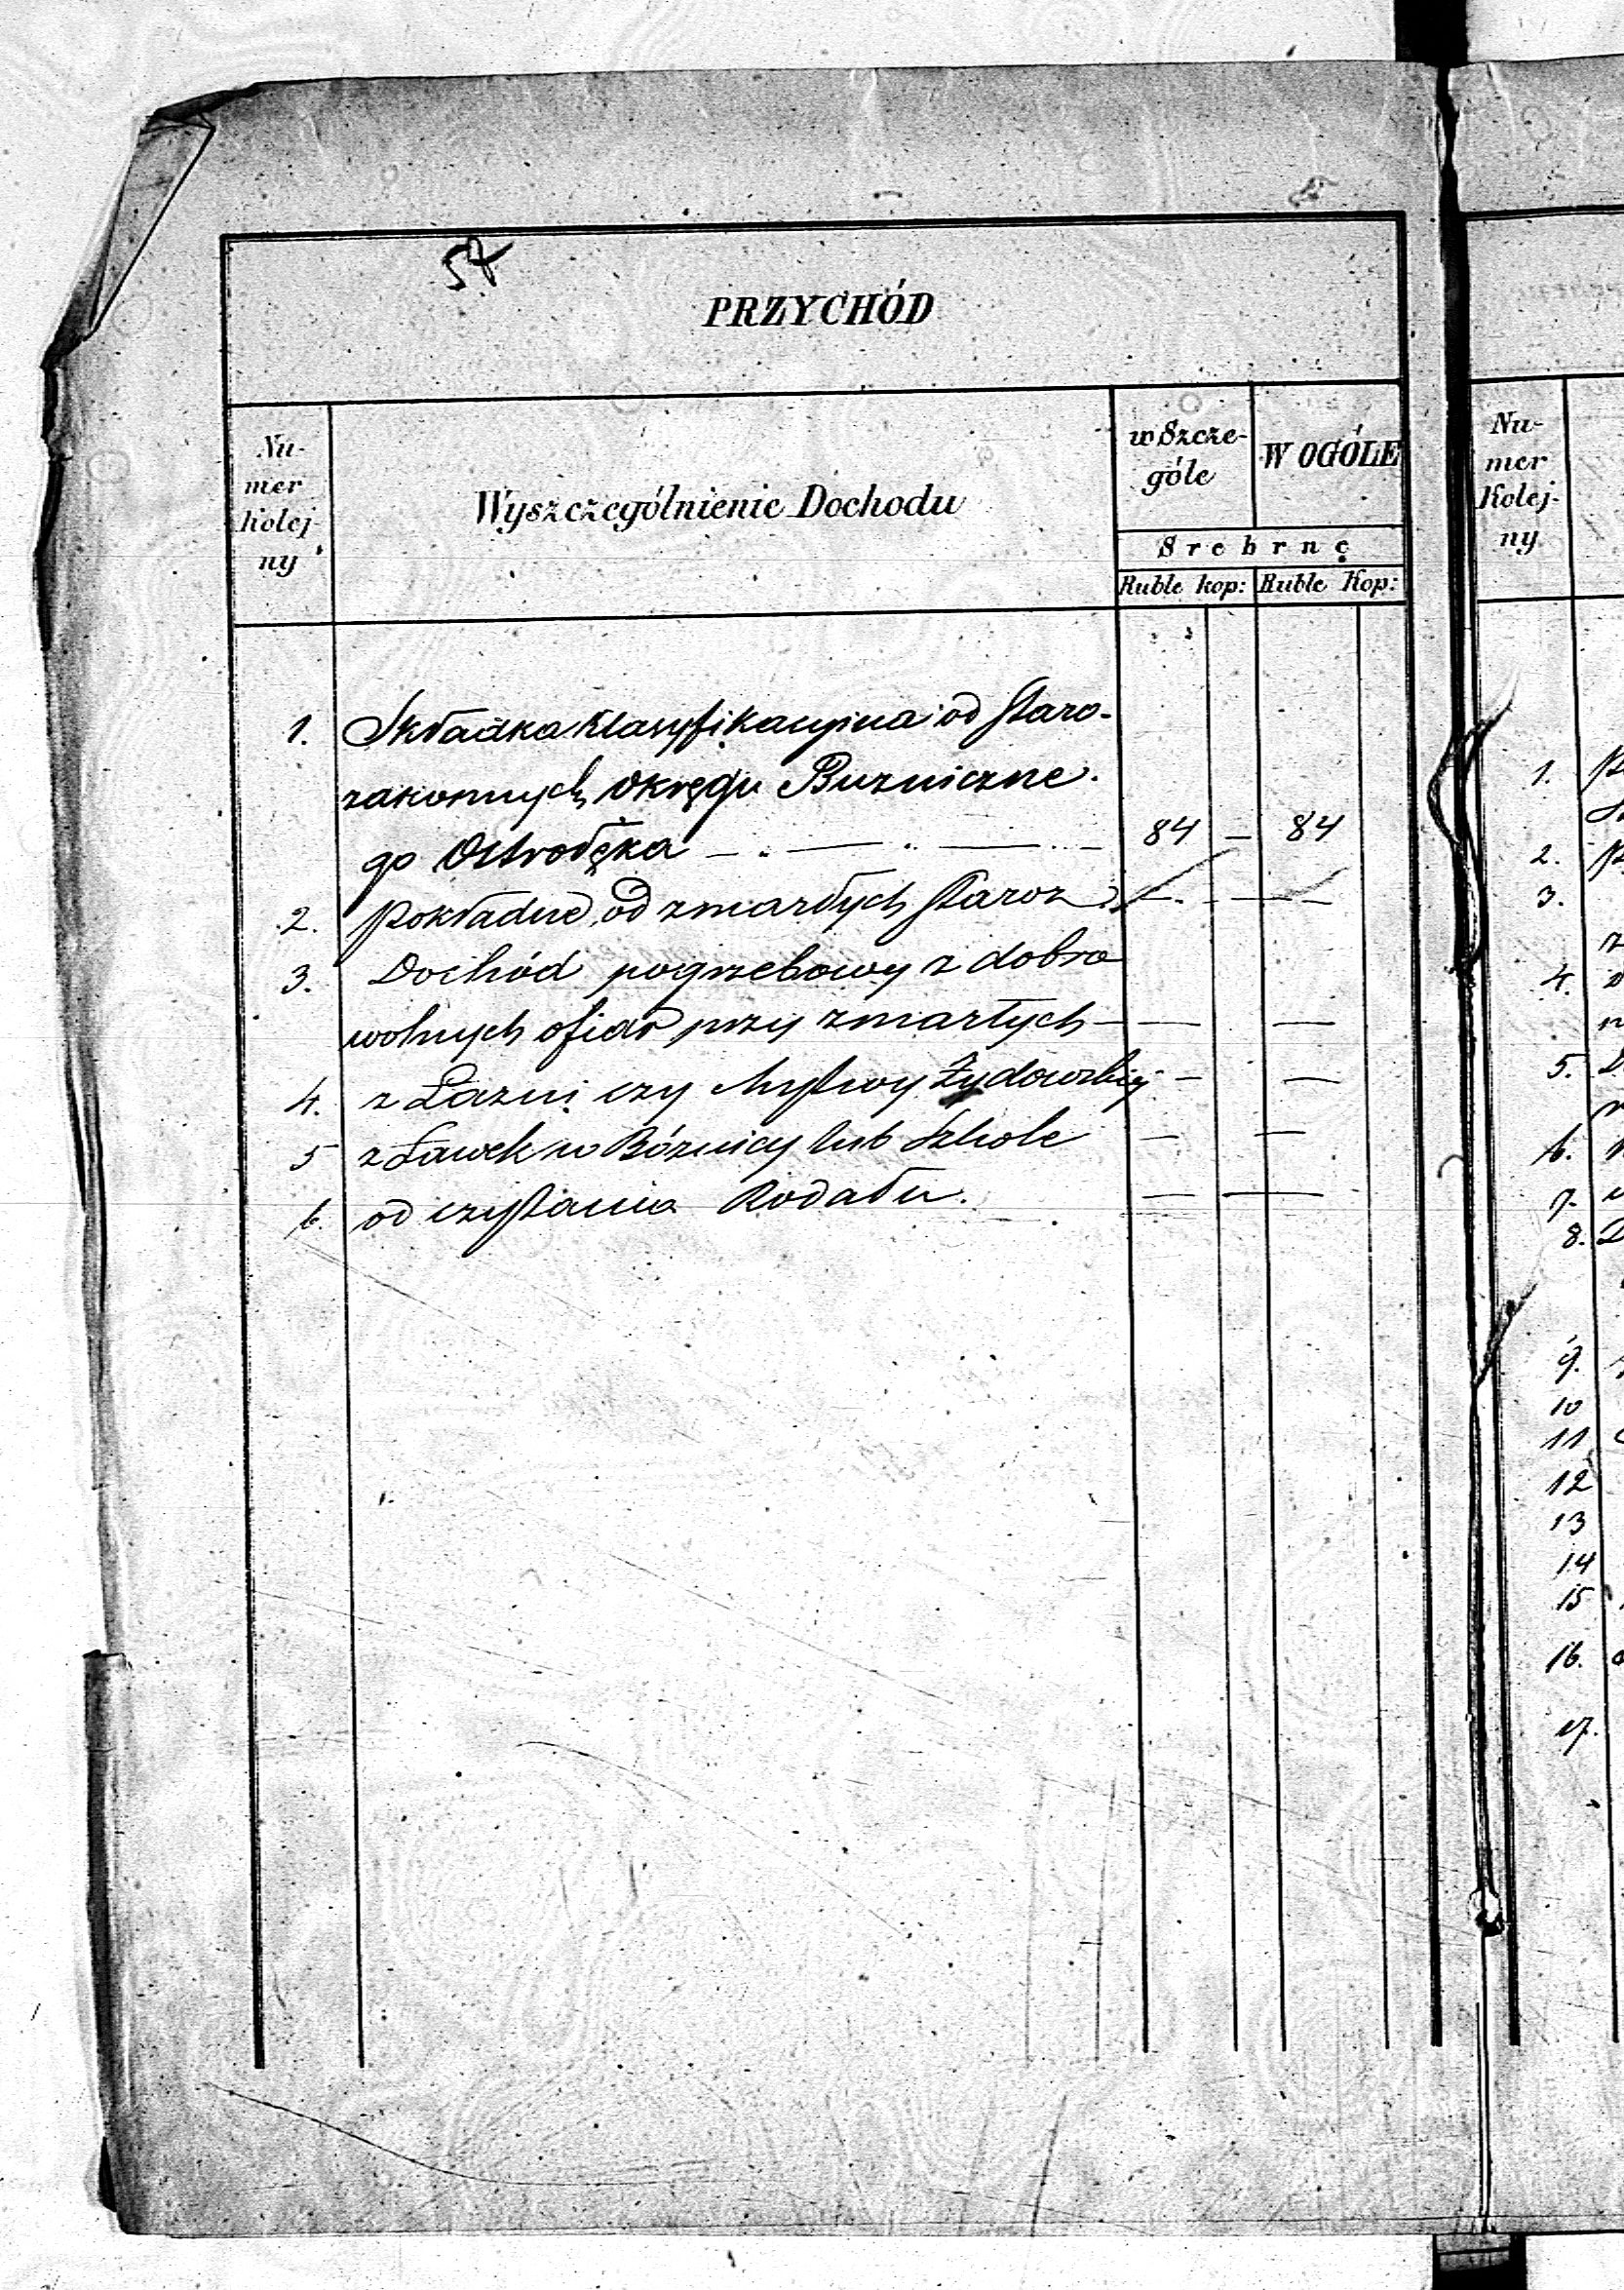 57
PRZYCHÓD
Nu-
mer
Kolej
ny
Wyszczególnienie Dochodu
w Szcze-
góle
W OGÓLE
Srebrne
Ruble kop: Ruble Kop:
1. Składka klasyfikacyina od Staro-
zakonnych okręgu Buzniczne-
go Ostrołęka — 84 — 84
2. pokładne od zmarłych Staroz — —
3. Dochód pogrzebowy z dobro
wolnych ofiar przy zmarłych — — —
4. z Łazni czy Mykwy Żydowskiej — —
5 z Ławek w Bóżnicy lub Szkole — —
6. od czystania Rodału. — —
Nu-
mer
Kolej-
ny
1.
2.
3.
4.
5.
6.
7.
8.
9.
10
11
12
13
14
15
16.
17.